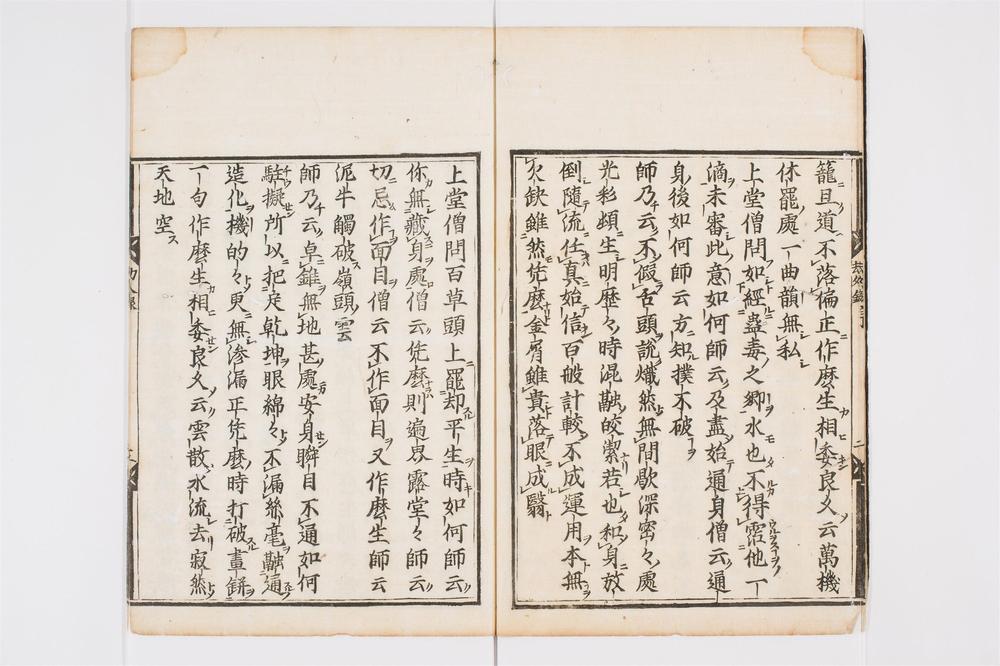 籠且道不落偏正作麽生相委良久云萬機
休罷處一曲韻無私
上堂僧問如經蠱毒之郷水也不得霑他一
滴未審此意如何師云及盡始通身僧云通
身後如何師云方知撲不破
師乃云不假舌頭説熾然無間歇深密々處
光彩頻生明歷々時混融皎潔若也和身放
倒隨流任真始信百般計較不成運用本無
欠缺雖然恁麽金屑雖貴落眼成翳
上堂僧問百草頭上罷却平生時如何師云
你無藏身處僧云恁麽則遍界露堂々師云
切忌作面目僧云不作面目又作麽生師云
泥牛觸破嶺頭雲
師乃云卓錐無地甚處安身瞬目不通如何
駐擬所以把定乾坤眼綿々不漏絲毫融通
造化機的々更無滲漏正恁麽時打破畫餅
一句作麽生相委良久云雲散水流去寂然
天地空